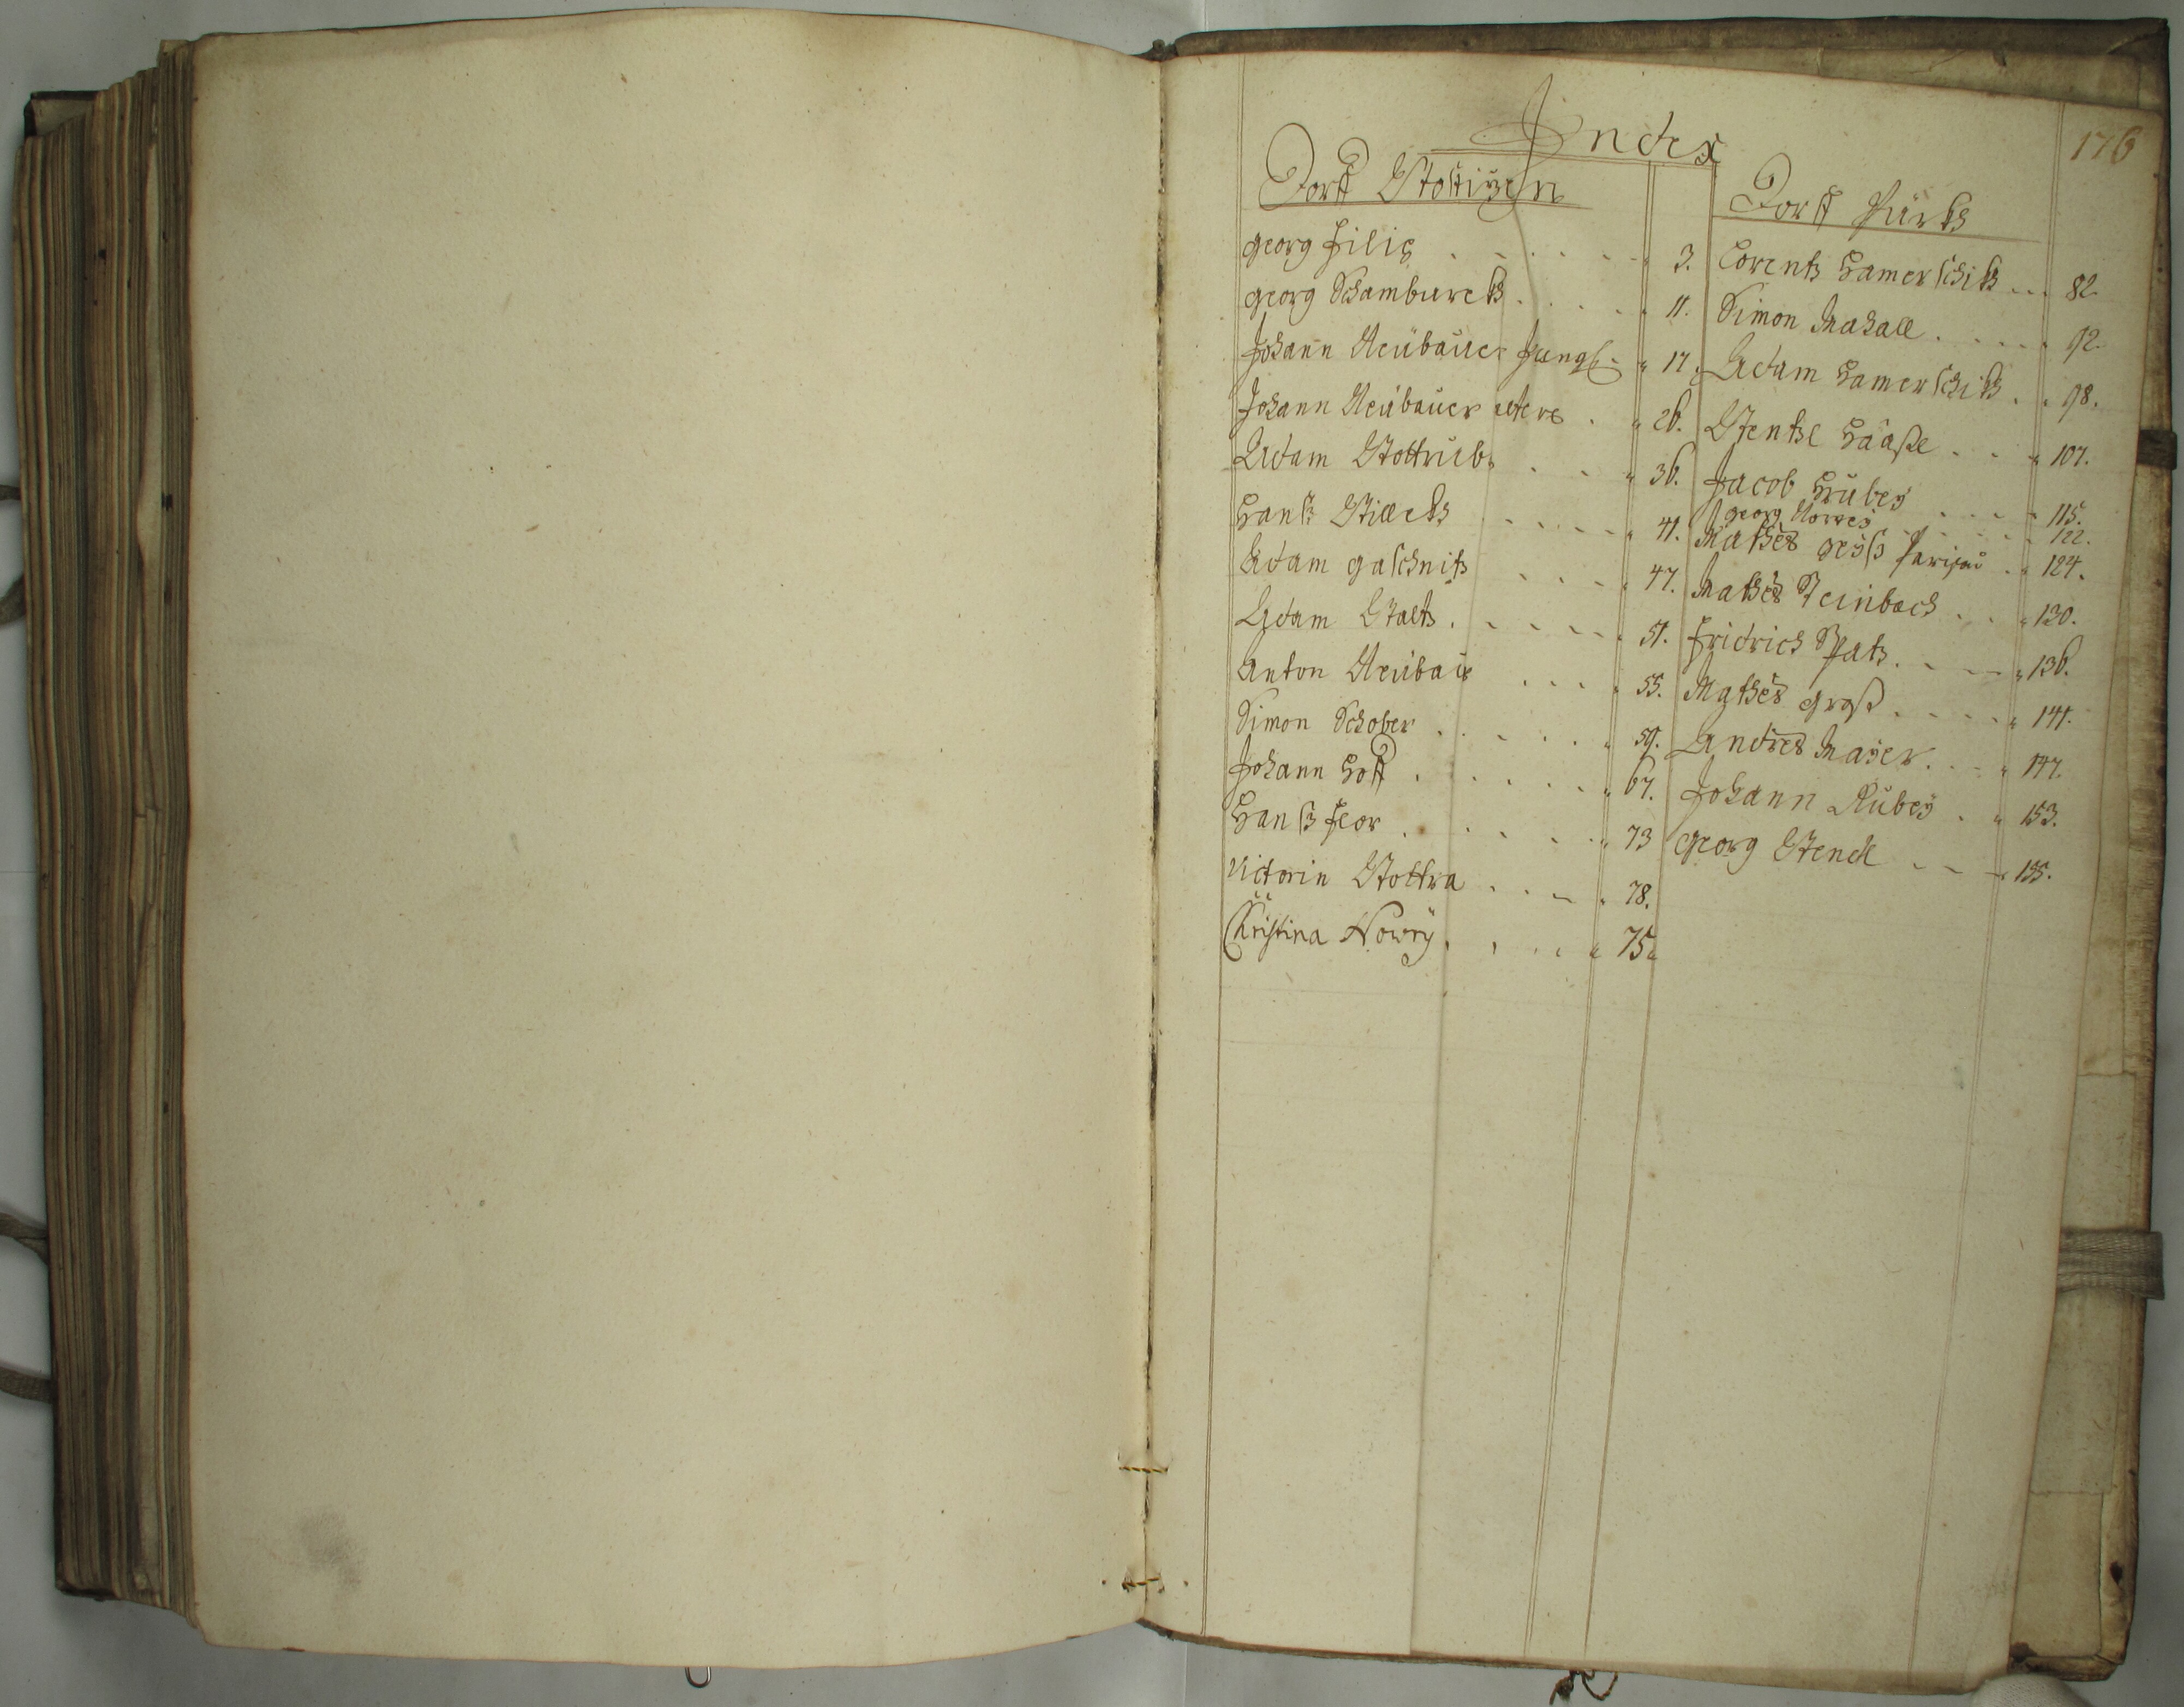 176
Index
Dorff Wottitzen
georg Filip 3.
georg Schamburek 11.
Johann Neübauer Jung 17.
Johann Neübauer alter 26.
Adam Wottrub 36.
Hanß Willek 41.
Adam gaschnitz 47.
Adam Waltz 51.
Anton Neübau 55.
Simon Schober 59.
Johann Hoff 67.
Hanß Flor 73
Victorin Wottra 78.
Christina Nowy 75
Dorff Pürk
Lorentz Hamerschik 82.
Simon Mahall 92.
Adam Hamerschik 98.
Wentzl Haaße 107.
Jacob Hrubey 115.
georg Norvey 122.
Mathes geyß 124.
Mathes Steinbach 130.
Fridrich Spatz 136.
Mathes groß 141.
Andres Mayer 147.
Johann Rubey 153.
georg Wenck 155.